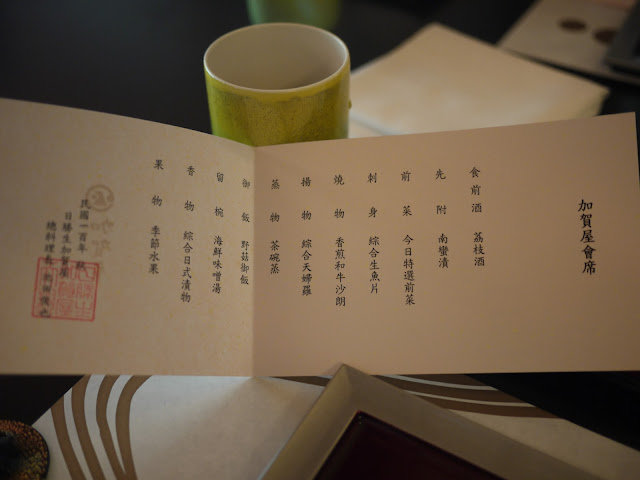 加賀屋會席
食前酒 荔枝酒
先附 南蠻漬
前菜 今日特選前菜
刺身 綜合生魚片
燒物 香煎和牛沙朗
揚物 綜合天婦羅
蒸物 茶碗蒸
御飯 野菇御飯
留椀 海鮮味噌湯
香物 綜合日式漬物
果物 季節水果
加賀屋
民國一百年
日勝生加賀屋
總料理長